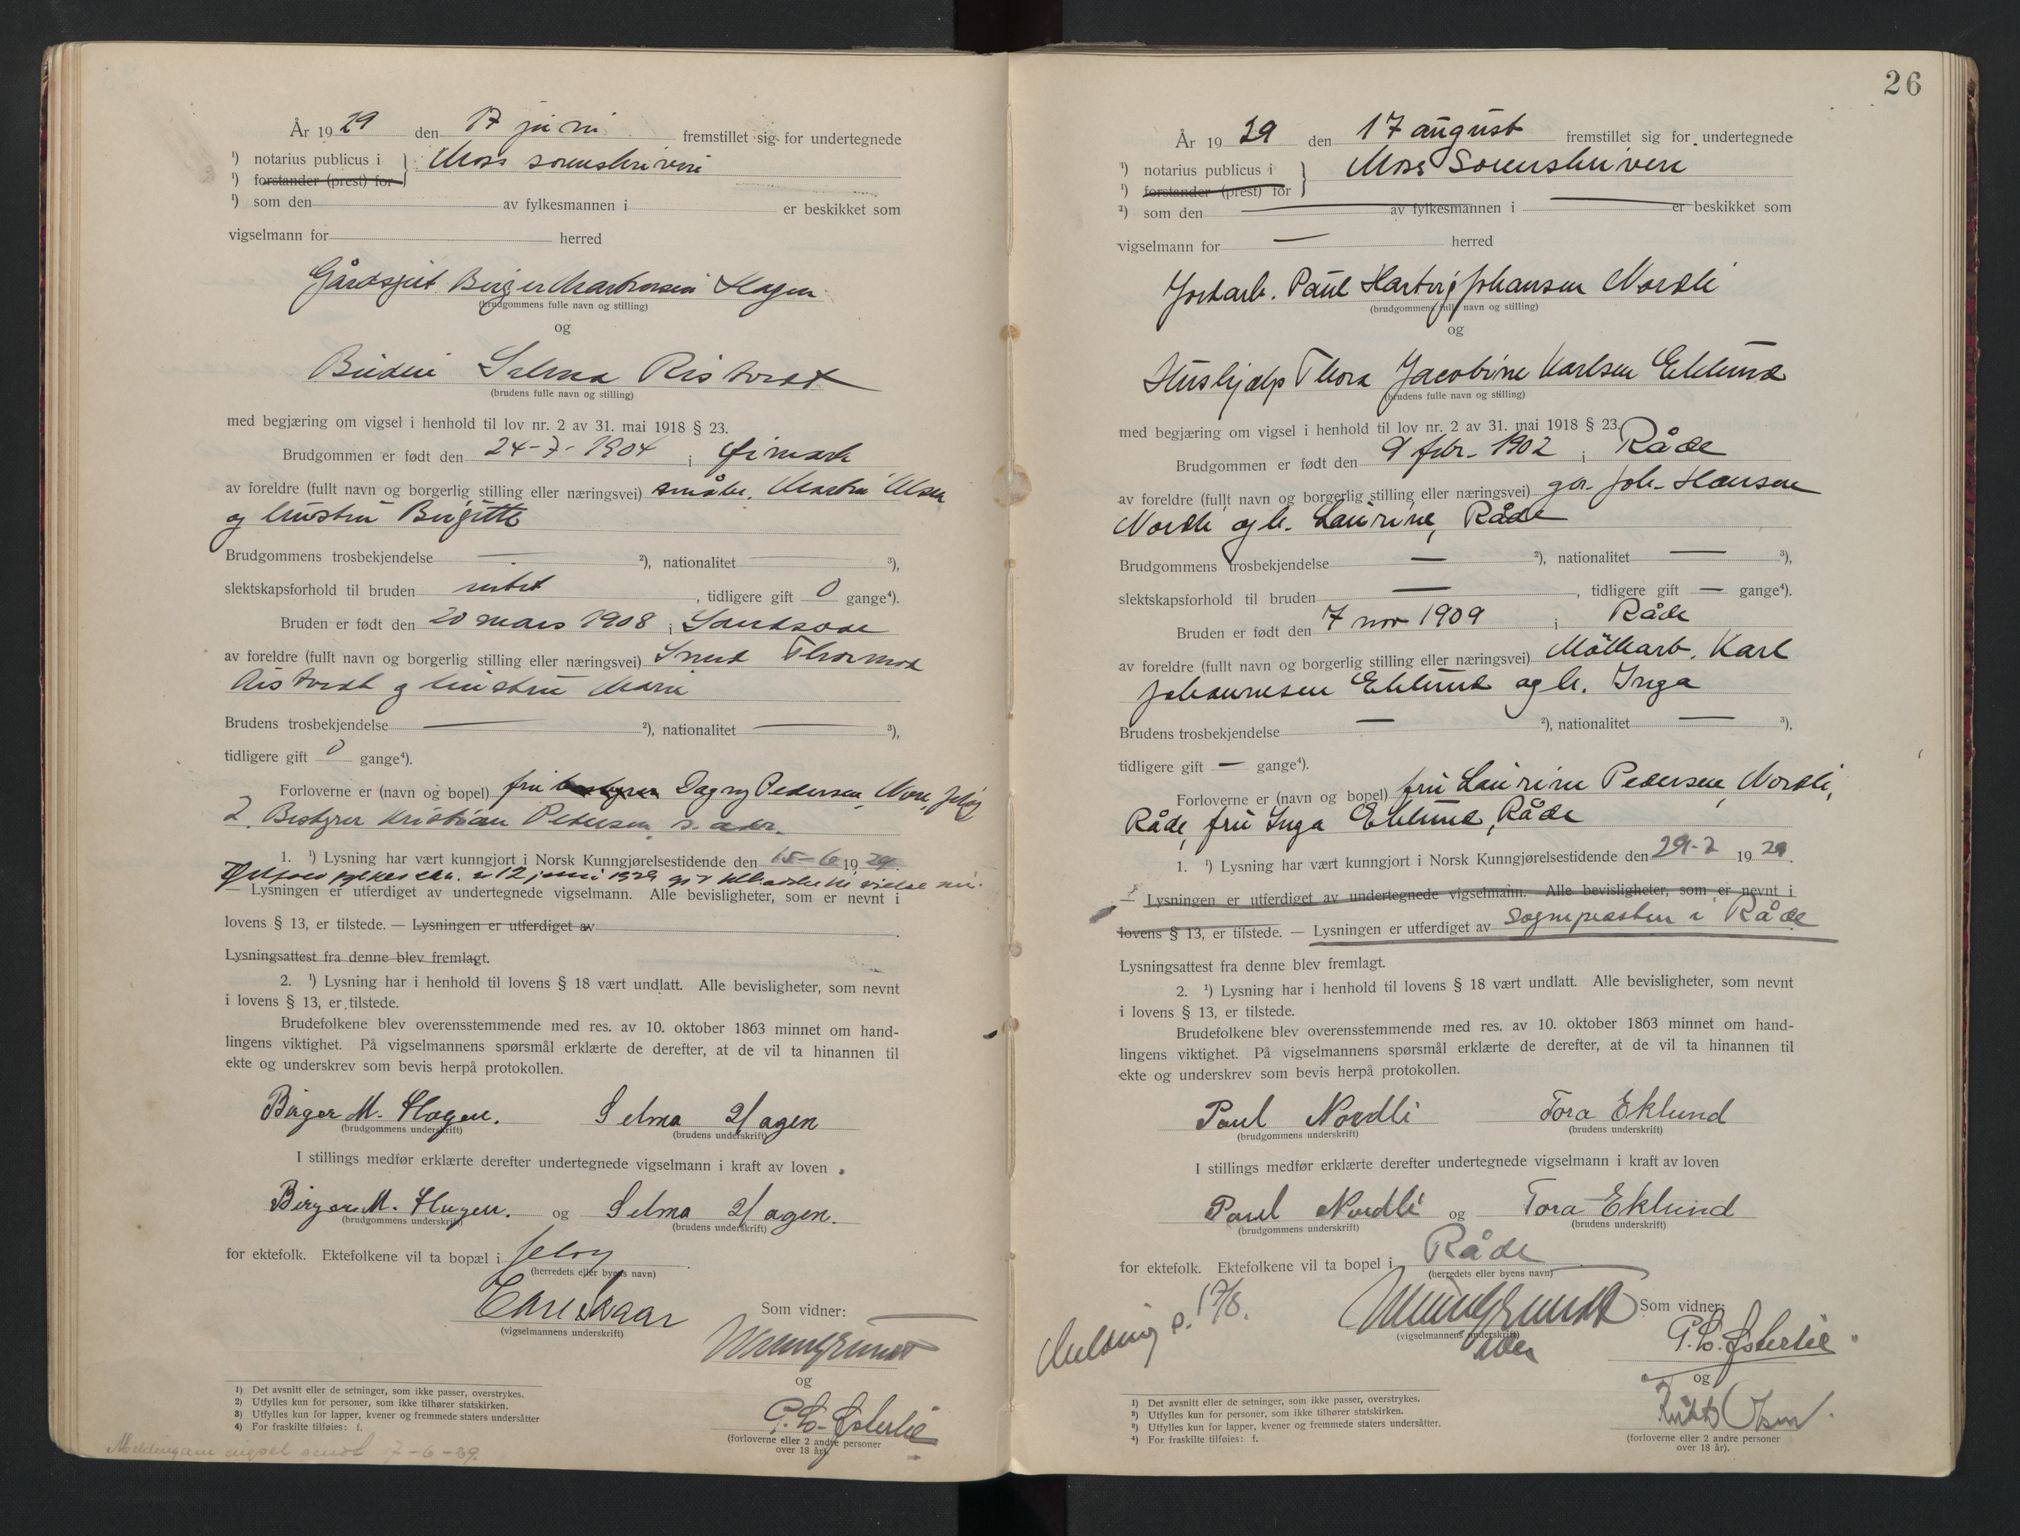 År 1929 den 17 juni fremstillet sig for undertegnede
¹) notarius publicus i } Moss sorenskriveri
¹) forstander (prest) for
¹) som den av fylkesmannen i er beskikket som
vigselmann for herred
Gårdsgut Birger Martinsen Hagen
(brudgommens fulle navn og stilling)
og
Selma Ristvedt
(brudens fulle navn og stilling)
med begjæring om vigsel i henhold til lov nr. 2 av 31. mai 1918 § 23.
Brudgommen er født den 24-7-1904 i Øimark
av foreldre (fullt navn og borgerlig stilling eller næringsvei) småbr. Martin Olsen
og hustru Birgitte
Brudgommens trosbekjendelse — ²), nationalitet — ³),
slektskapsforhold til bruden intet, tidligere gift 0 gange⁴).
Bruden er født den 20 mars 1908 i
av foreldre (fullt navn og borgerlig stilling eller næringsvei) Smed Thormod
Ristvedt og hustru Marie
Brudens trosbekjendelse — ²), nationalitet — ³),
tidligere gift 0 gange⁴).
Forloverne er (navn og bopel) fru Dagny Pedersen, Moss, Jeløy
2. Bestyrer Kristian Petersen, s. adr.
1. ¹) Lysning har vært kunngjort i Norsk Kunngjørelsestidende den 15-6 1929.
12 juni 1929
— Lysningen er utferdiget av undertegnede vigselmann. Alle bevisligheter, som er nevnt i
lovens § 13, er tilstede. — Lysningen er utferdiget av
Lysningsattest fra denne blev fremlagt.
2. ¹) Lysning har i henhold til lovens § 18 vært undlatt. Alle bevisligheter, som nevnt
i lovens § 13, er tilstede.
Brudefolkene blev overensstemmende med res. av 10. oktober 1863 minnet om hand-
lingens viktighet. På vigselmannens spørsmål erklærte de derefter, at de vil ta hinannen til
ekte og underskrev som bevis herpå protokollen.
Birger M. Hagen. Selma Hagen
(brudgommens underskrift) (brudens underskrift)
I stillings medfør erklærte derefter undertegnede vigselmann i kraft av loven
Birger M. Hagen. og Selma Hagen.
(brudgommens underskrift) (brudens underskrift)
for ektefolk. Ektefolkene vil ta bopæl i Jeløy
(herredets eller byens navn)
Som vidner:
(vigselmannens underskrift)
og
P. L. Østerlie
(forloverne eller 2 andre personer
over 18 år).
1) Det avsnitt eller de setninger, som ikke passer, overstrykes.
2) Utfylles kun for personer, som ikke tilhører statskirken.
3) Utfylles kun for lapper, kvener og fremmede staters undersåtter
4) For fraskilte tilføies: f.
Melding om vigsel sendt 17-6-29.
26
År 1929 den 17 august fremstillet sig for undertegnede
¹) notarius publicus i } Moss Sorenskriveri
¹) forstander (prest) for
²) som den av fylkesmannen i er beskikket som
vigselmann for — herred
Jordarb. Paul Hartvig Johansen Nordli
(brudgommens fulle navn og stilling)
og
Hushjælp Thora Jacobine Karlsen Eklund
(brudens fulle navn og stilling)
med begjæring om vigsel i henhold til lov nr. 2 av 31. mai 1918 § 23.
Brudgommen er født den 9 febr. 1902 i Råde
av foreldre (fullt navn og borgerlig stilling eller næringsvei) Joh. Hansen
Nordli og h. Laurine, Råde
Brudgommens trosbekjendelse — ²), nationalitet — ³),
slektskapsforhold til bruden —, tidligere gift — gange⁴).
Bruden er født den 7 nov 1909 i Råde
av foreldre (fullt navn og borgerlig stilling eller næringsvei) Møllearb. Karl
Johannesen Eklund og h. Inga
Brudens trosbekjendelse — ²), nationalitet — ³),
tidligere gift — gange⁴).
Forloverne er (navn og bopel) fru Laurine Pedersen, Nordli,
Råde, fru Inga Eklund, Råde
1. ¹) Lysning har vært kunngjort i Norsk Kunngjørelsestidende den 29-7 1929.
— Lysningen er utferdiget av undertegnede vigselmann. Alle bevisligheter, som er nevnt i
lovens § 13, er tilstede. — Lysningen er utferdiget av sognepresten i Råde
Lysningsattest fra denne blev fremlagt.
2. ¹) Lysning har i henhold til lovens § 18 vært undlatt. Alle bevisligheter, som nevnt
i lovens § 13, er tilstede.
Brudefolkene blev overensstemmende med res. av 10. oktober 1863 minnet om hand-
lingens viktighet. På vigselmannens spørsmål erklærte de derefter, at de vil ta hinannen til
ekte og underskrev som bevis herpå protokollen.
Paul Nordli Tora Eklund
(brudgommens underskrift) (brudens underskrift)
I stillings medfør erklærte derefter undertegnede vigselmann i kraft av loven
Paul Nordli og Tora Eklund
(brudgommens underskrift) (brudens underskrift)
for ektefolk. Ektefolkene vil ta bopel i Råde
(herredets eller byens navn)
Melding s. 17/8.
Som vidner:
(vigselmannens underskrift)
P. L. Østerlie
og
(forloverne eller 2 andre personer
over 18 år).
¹) Det avsnitt eller de setninger, som ikke passer, overstrykes.
²) Utfylles kun for personer, som ikke tilhører statskirken.
³) Utfylles kun for lapper, kvener og fremmede staters undersåtter.
⁴) For fraskilte tilføies: f.